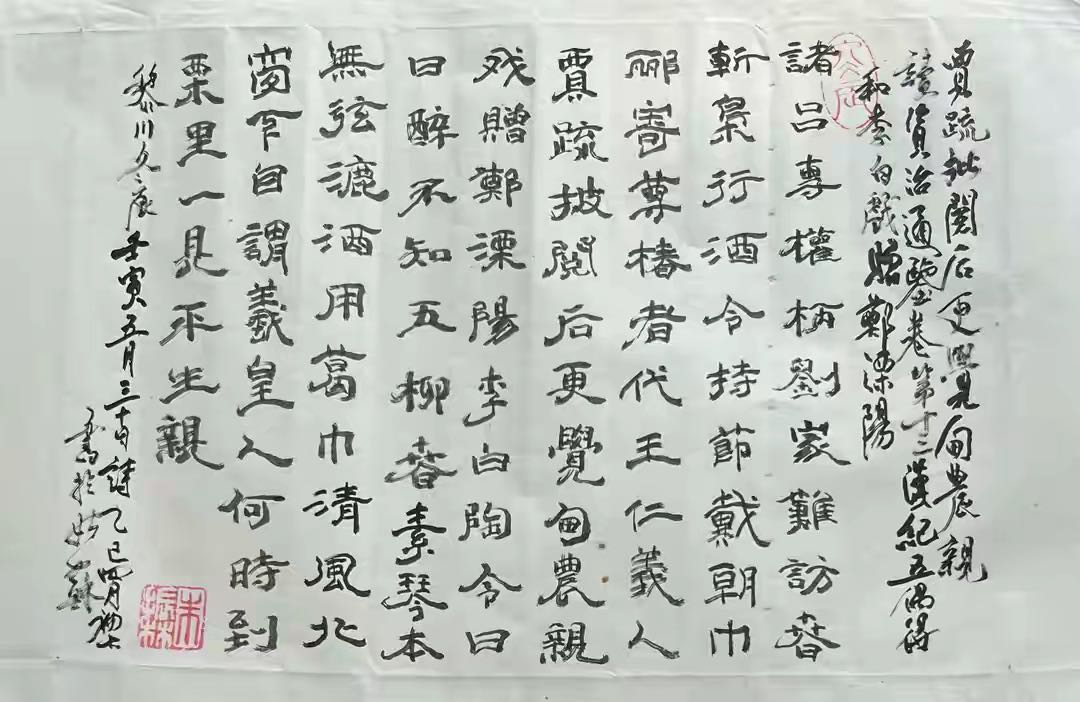 賈疏披閱后更覺甸農親
讀資治通鑒卷第十三漢紀五偶得
和李白戲贈鄭溧陽
諸呂專權柄劉家難訪春
斬梟行酒令持節戴朝巾
酈寄尊椿者代王仁義人
賈疏披閱后更覺甸農親
戏贈鄭溧陽李白陶令日
日醉不知五柳春素琴本
無弦漉酒用葛巾清風北
窗下自謂羲皇人何時到
栗里一見平生親
黎川久康壬寅五月三十日詩乙巳四月
書於姑蘇